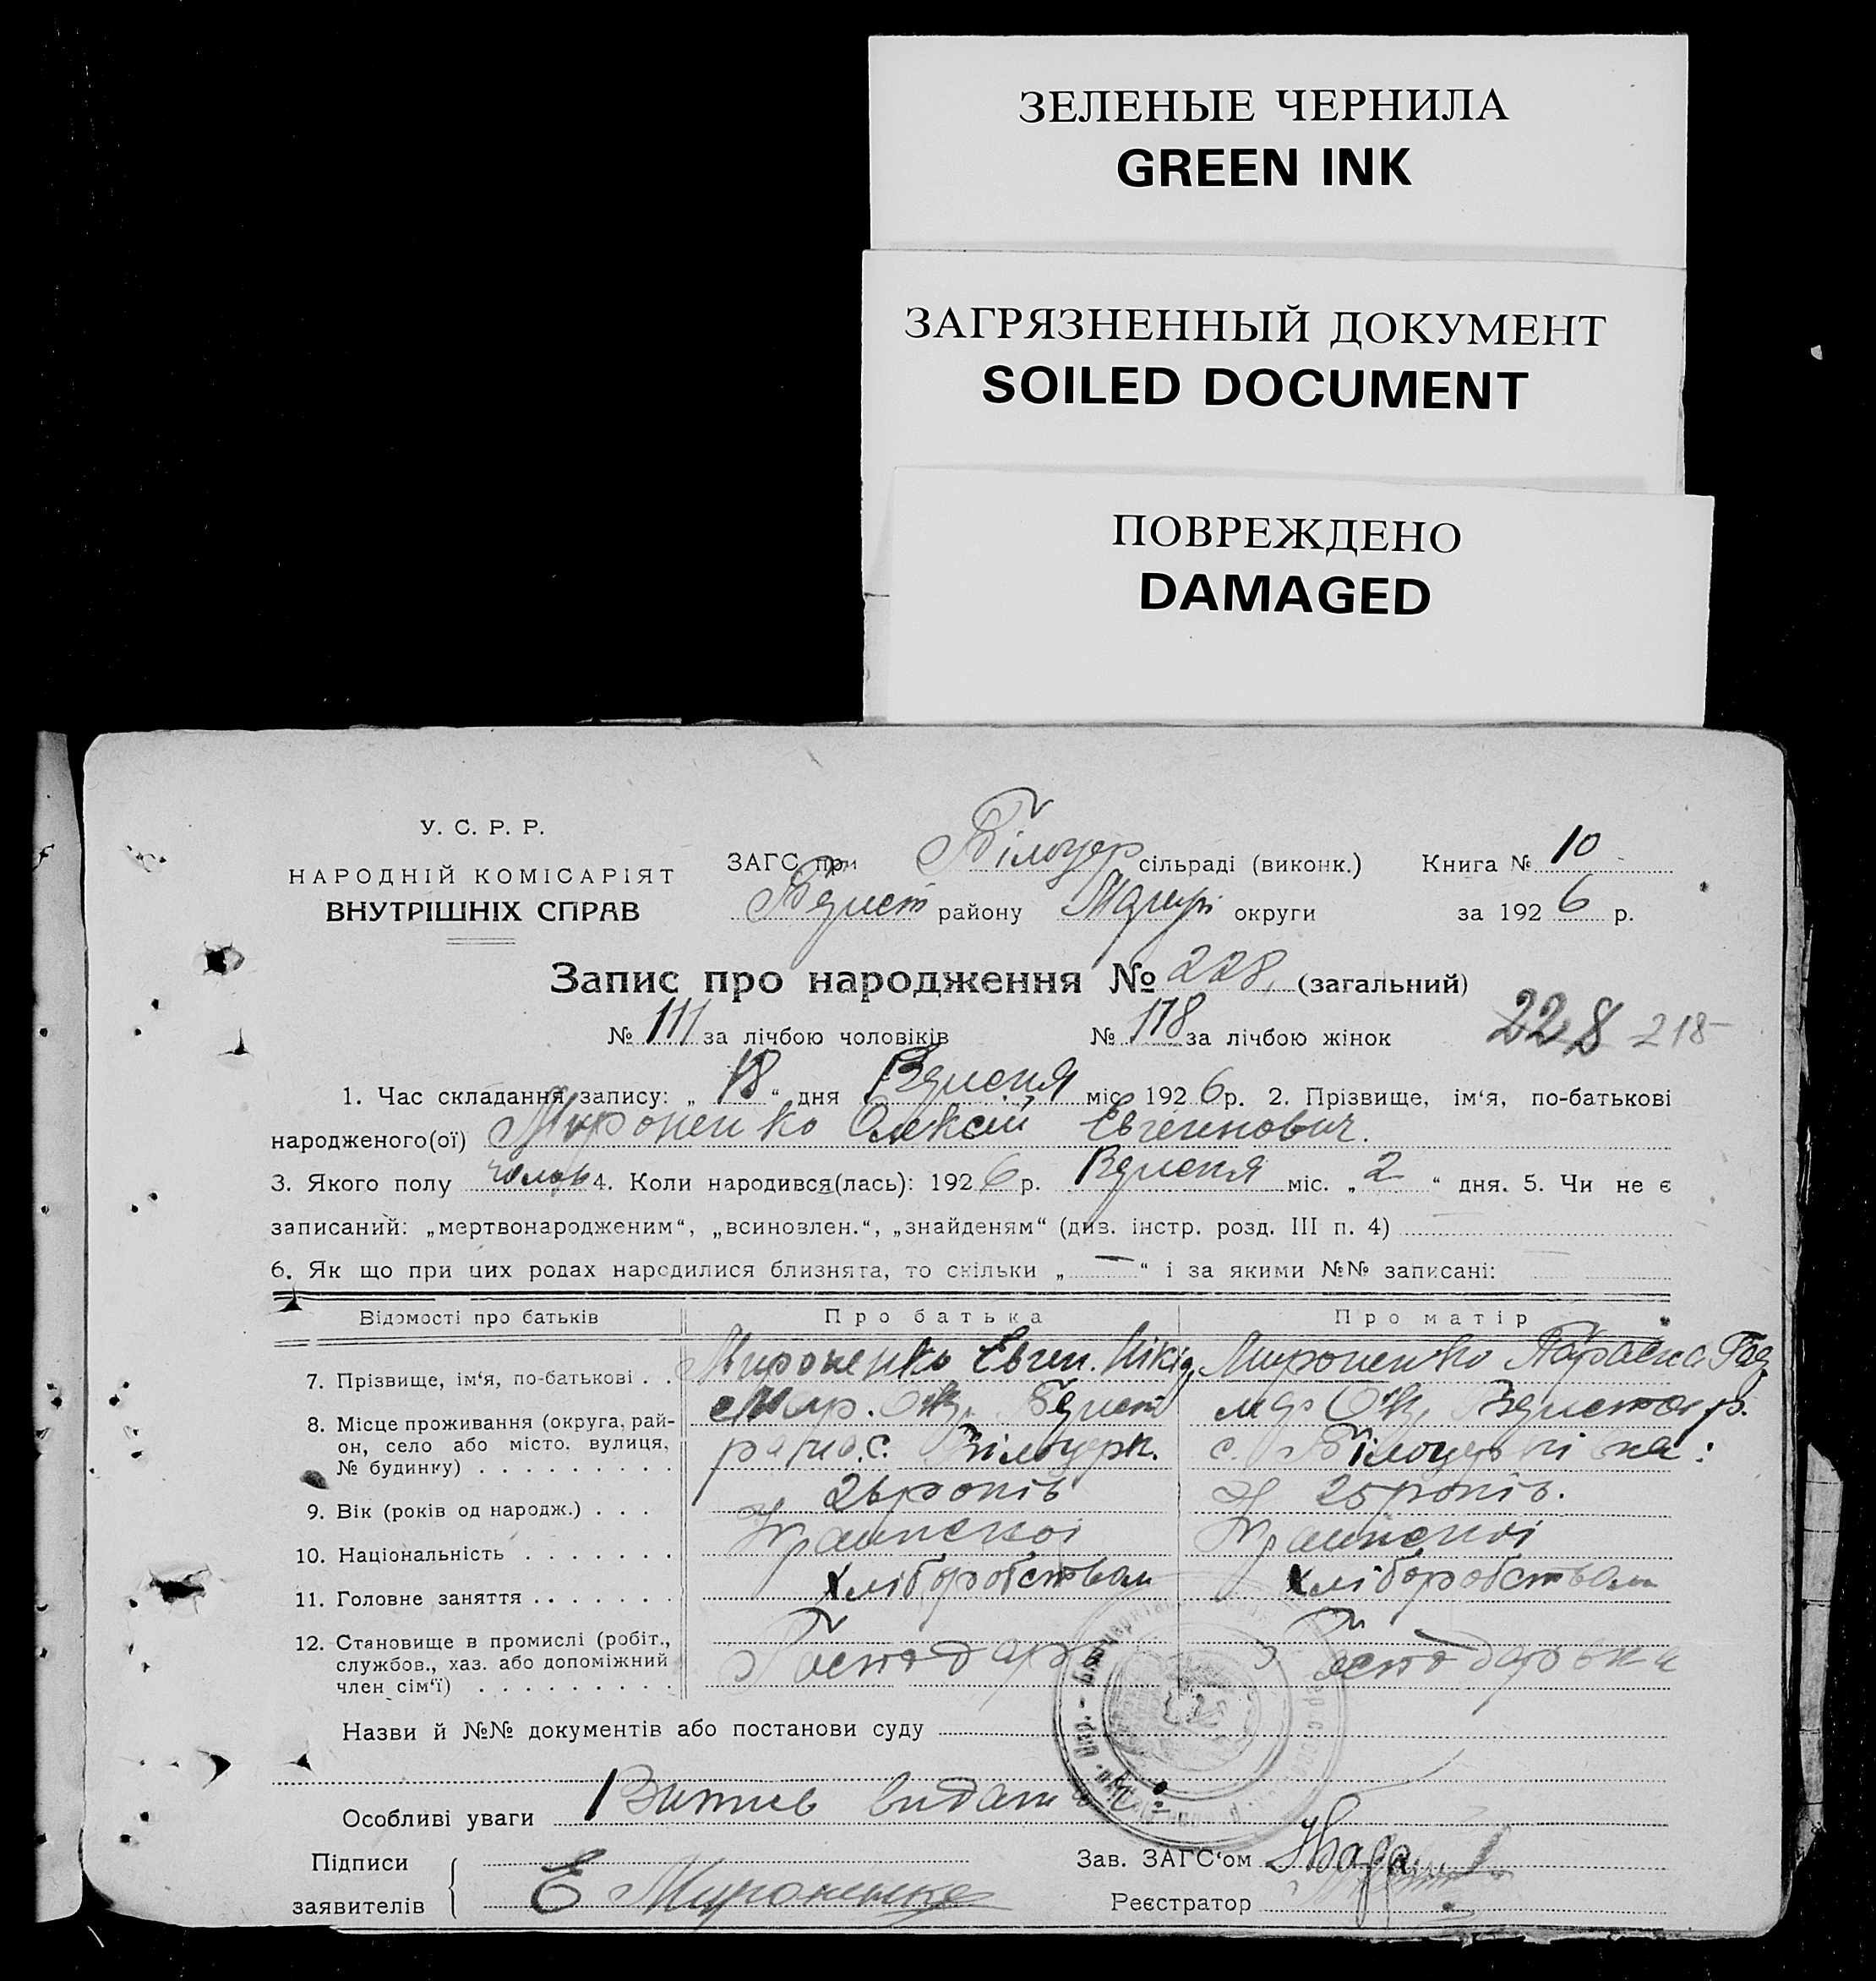 ЗЕЛЕНЫЕ ЧЕРНИЛА
GREEN INK
ЗАГРЯЗНЕННЫЙ ДОКУМЕНТ
SOILED DOCUMENT
ПОВРЕЖДЕНО
DAMAGED
У. С. Р. Р.
НАРОДНІЙ КОМІСАРІЯТ
ВНУТРІШНІХ СПРАВ
ЗАГС при Білоцер сільраді (виконк.) Книга № 10
району округи за 1926 р.
Запис про народження № 228, (загальний)
№ 111 за лічбою чоловіків № 118 за лічбою жінок 228 218
1. Час складання запису: „18“ дня Вересня міс 1926 р. 2. Прізвище, ім‘я, по-батькові
народженого(ої) Мироненко Олексій Евгенович.
3. Якого полу чолов 4. Коли народився(лась): 1926 р. Вересня міс. „2“ дня. 5. Чи не є
записаний: „мертвонародженим“, „всиновлен.“, „знайденям“ (див. інстр. розд. III п. 4)
6. Як що при цих родах народилися близнята, то скільки „—“ і за якими №№ записані:
Відомості про батьків Про батька Про матір
7. Прізвище, ім‘я, по-батькові . . Мироненко Евген. Нікід, Мироненко
8. Місце проживання (округа, рай-
он, село або місто, вулиця,
№ будинку) . . . . . . . . . с. Білоцерк. с. Білоцерківка:
9. Вік (років од народж.) . . . 26 років 25 років.
10. Національність . . . . . . . Українскоі Украінскоі
11. Головне заняття . . . . . . . хліборобством хліборобством
12. Становище в промислі (робіт.,
службов., хаз. або допоміжний
член сім‘ї) . . . . . . . . . Господар Господарька
Назви й №№ документів або постанови суду
Особливі уваги Витяг видан
Підписи
заявителів Е Мироненко
Зав. ЗАГС‘ом
Реєстратор